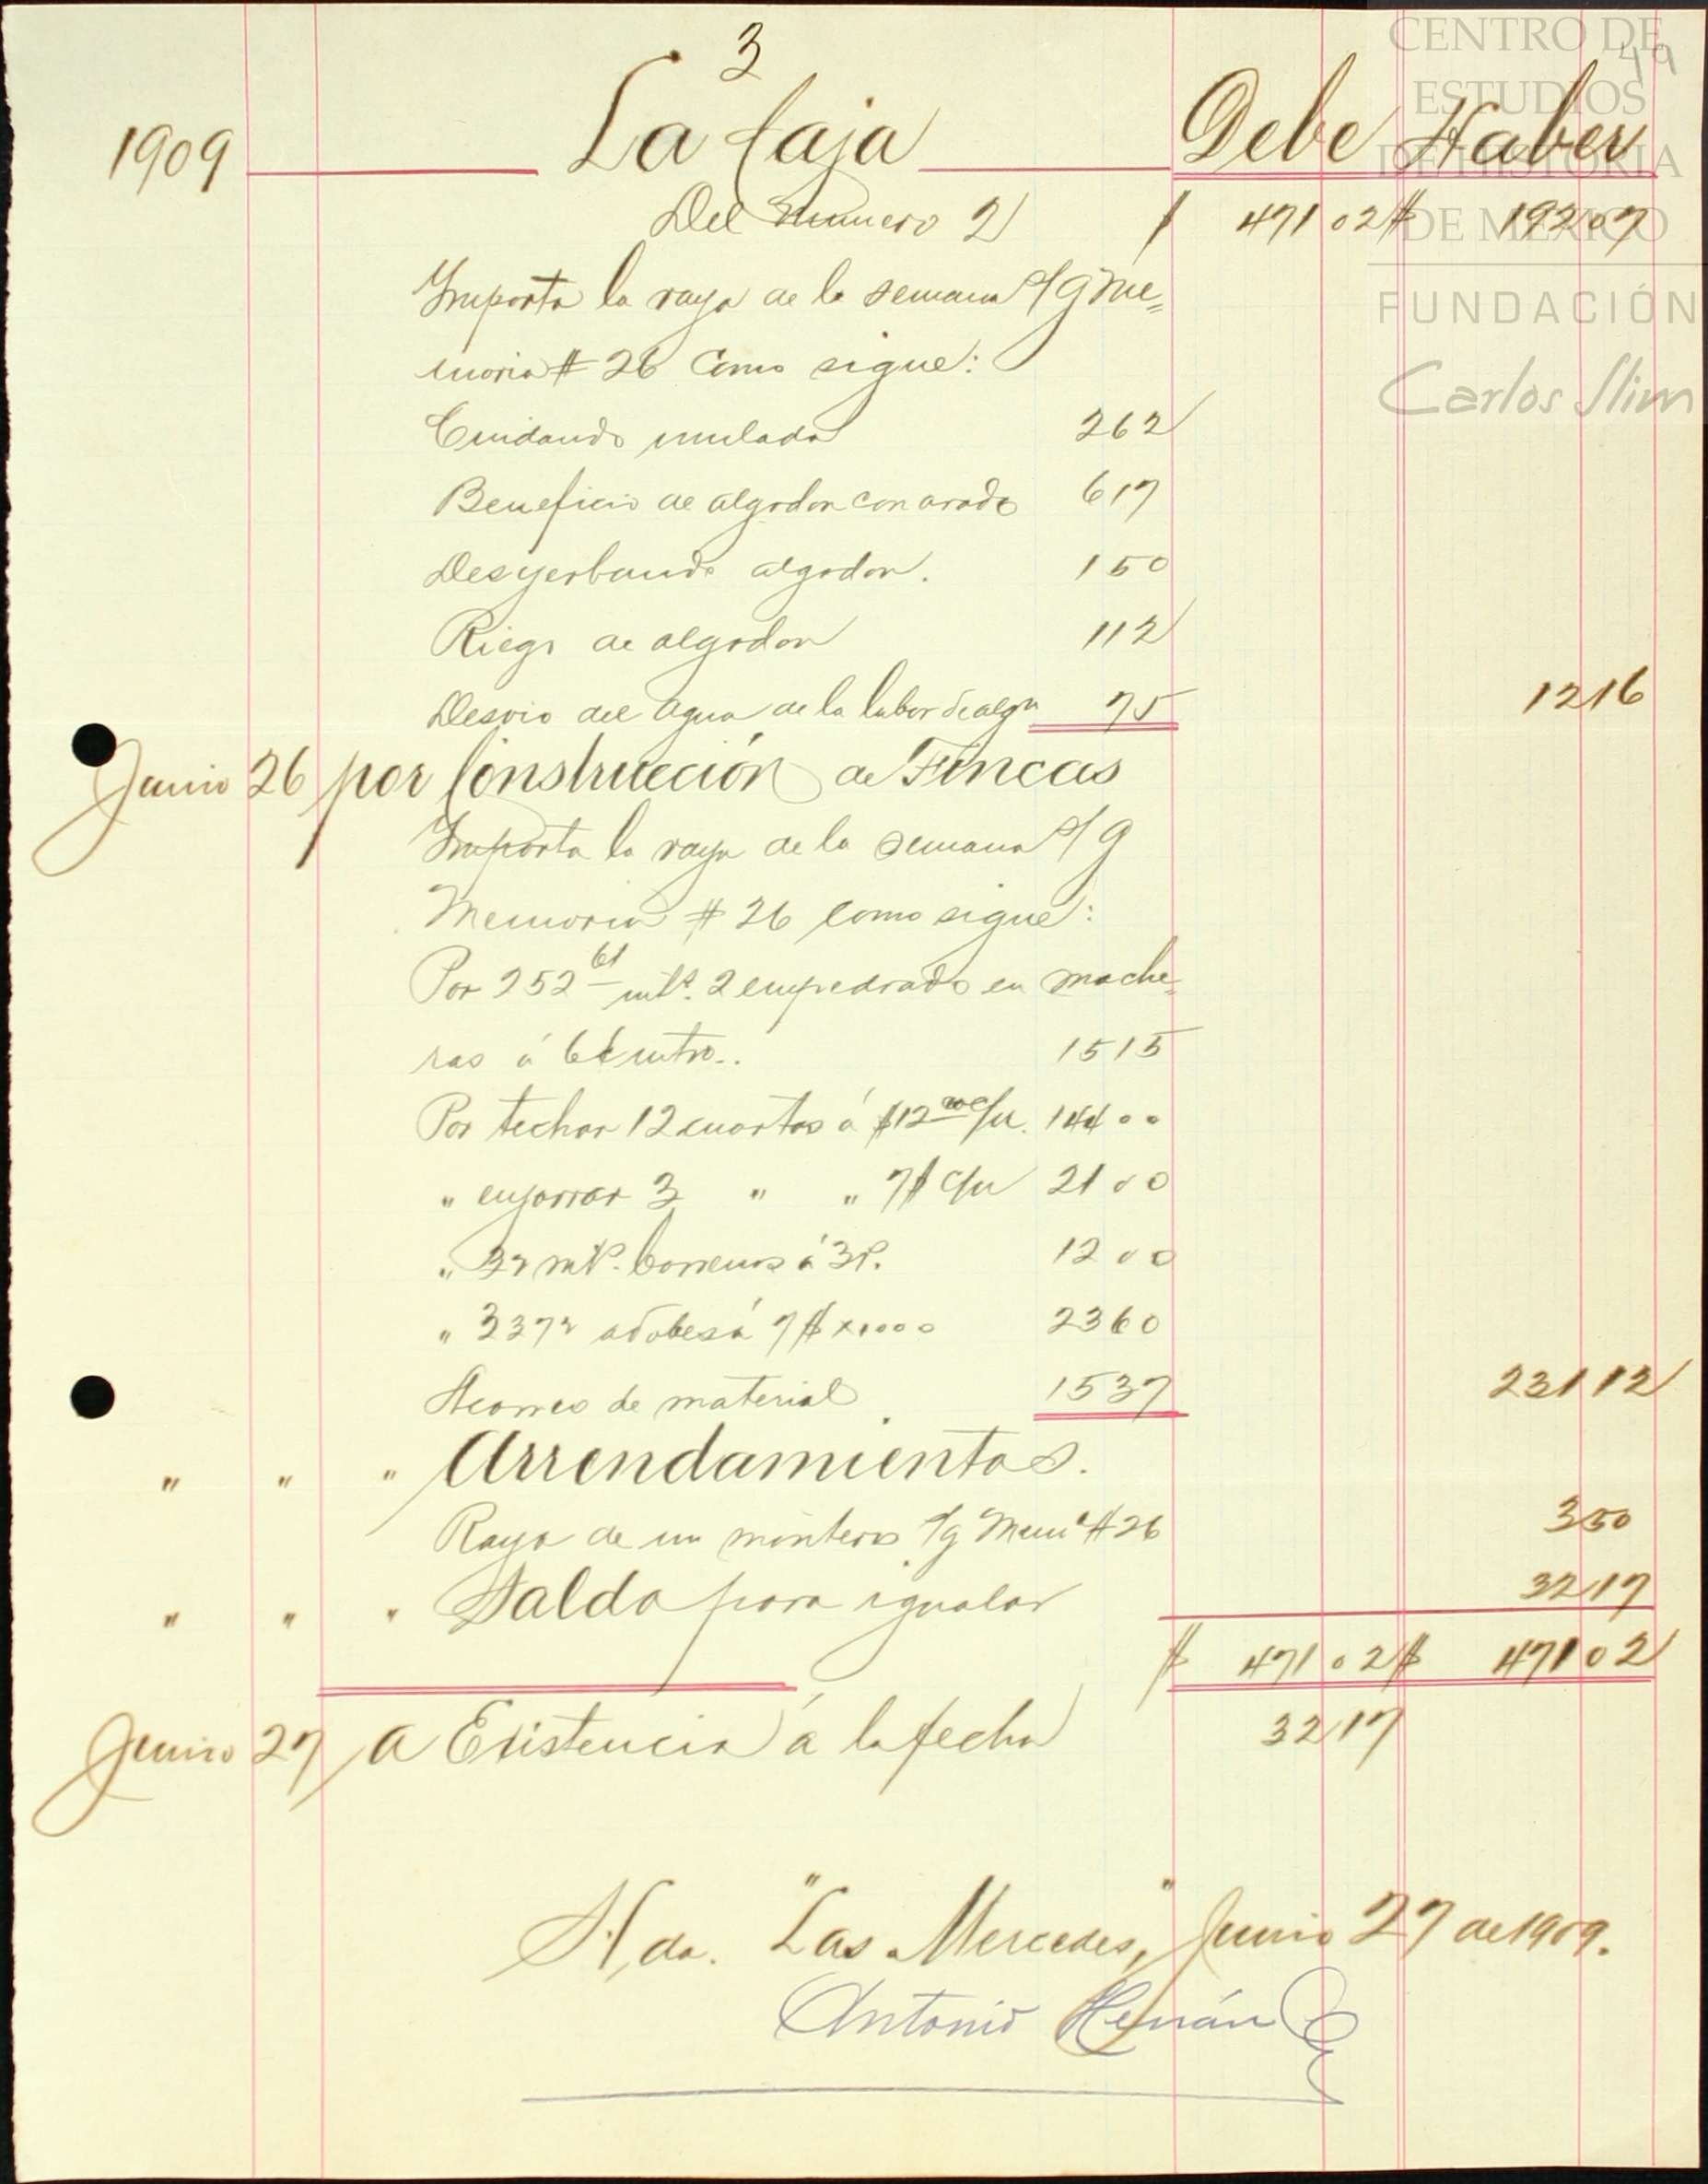 CENTRO DE
ESTUDIOS
DE HISTORIA
DE MÉXICO
FUNDACIÓN
Carlos Slim
49
3
1909 La Caja Debe Haber
Del Numero 2 $ 471 02 $ 192 07
Importa la raya de la semana s/g Me=
moria # 26 Como sigue:
Cuidando mulada 2 62
Beneficio de algodon con arado 6 17
Desyerbando algodon. 1 50
Riego de algodon 1 12
Desvio del agua de la labor de algn 75 12 16
Junio 26 por Construcción de Fincas
Importa la raya de la semana s/g
Memoria # 26 como sigue:
Por 252 61 mts. 2 empedrado en mache=
ras á 6¢ mtro.. 15 15
Por techar 12 cuartos á $12 00 c/u. 144 00
" enjarrar 3 " " 7$ c/u 21 00
" 32 mts. á 3r. 12 00
" 3372 adobes á 7$ x 1000 23 60
Acarreo de material 15 37 231 12
" " " Arrendamientos.
Raya de un montero s/g Mema # 26 3 50
" " " Saldo para igualar 32 17
$ 471 02 $ 471 02
Junio 27 a Existencia á la fecha 32 17
Hda. "Las Mercedes," Junio 27 de 1909.
Antonio